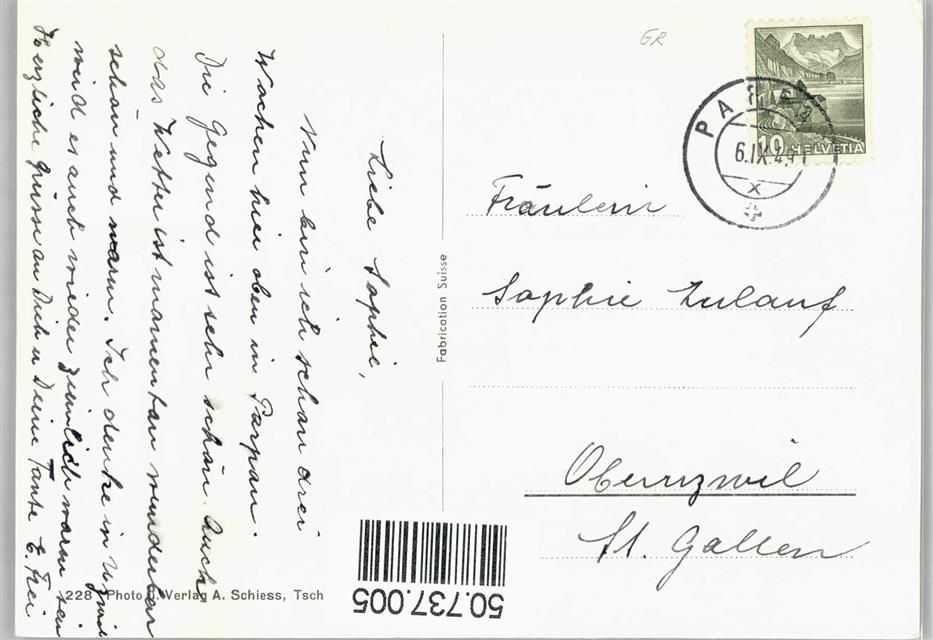 Liebe Sophie,
Nun bin ich schon drei
Wochen hier oben in Parpan.
Die Gegend ist sehr schön. Auch
das Wetter ist momentan wunderbar
schön und warm. Ich denke in Uzwil
wird es auch wieder ziemlich warm sein
Herzliche Grüsse an Dich u Deine Tante E. Frei
228 Photo u. Verlag A. Schiess, Tsch
Fabrication Suisse
GR
HELVETIA
10
6.IX.49
X
Fräulein
Sophie Zulauf
Oberuzwil
St. Gallen
50.737.005